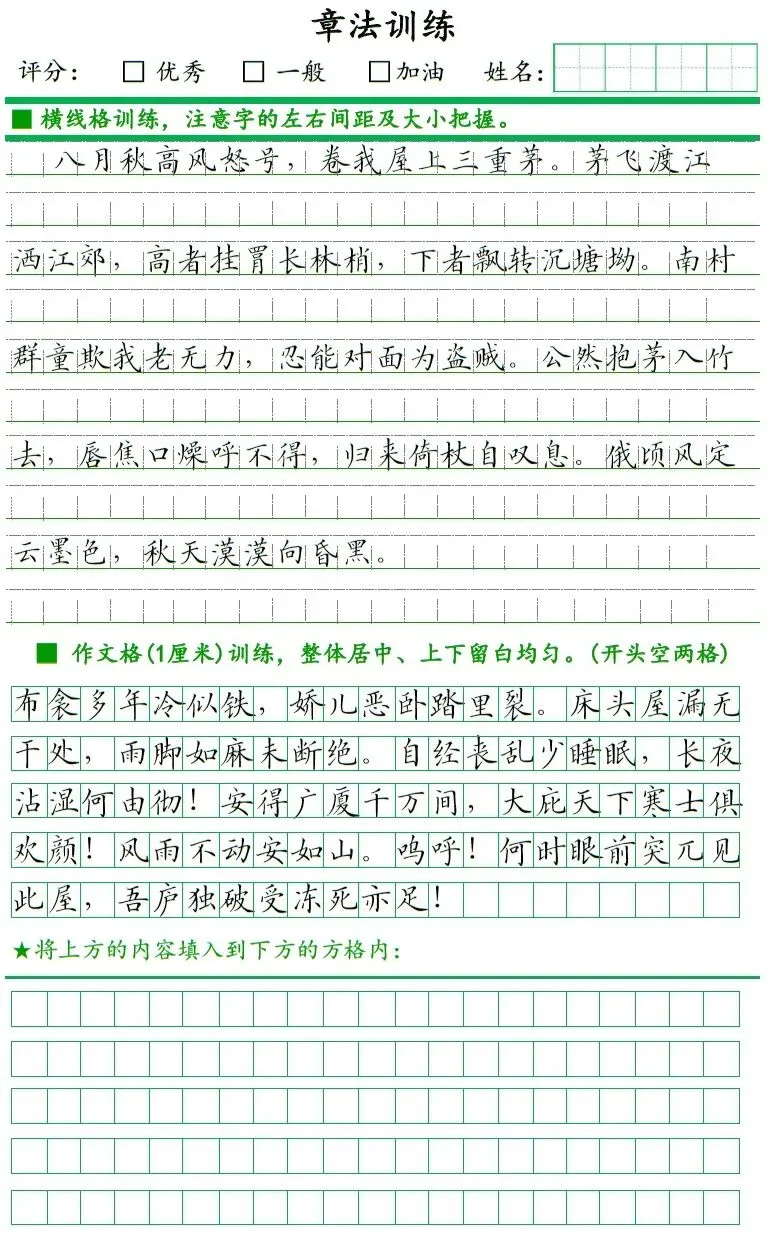 章法训练
评分： □ 优秀 □ 一般 □加油 姓名：
■ 横线格训练，注意字的左右间距及大小把握。
八月秋高风怒号，卷我屋上三重茅。茅飞渡江
洒江郊，高者挂罥长林梢，下者飘转沉塘坳。南村
群童欺我老无力，忍能对面为盗贼。公然抱茅入竹
去，唇焦口燥呼不得，归来倚杖自叹息。俄顷风定
云墨色，秋天漠漠向昏黑。
■ 作文格(1厘米)训练，整体居中、上下留白均匀。(开头空两格)
布衾多年冷似铁，娇儿恶卧踏里裂。床头屋漏无
干处，雨脚如麻未断绝。自经丧乱少睡眠，长夜
沾湿何由彻！安得广厦千万间，大庇天下寒士俱
欢颜！风雨不动安如山。呜呼！何时眼前突兀见
此屋，吾庐独破受冻死亦足！
★将上方的内容填入到下方的方格内：